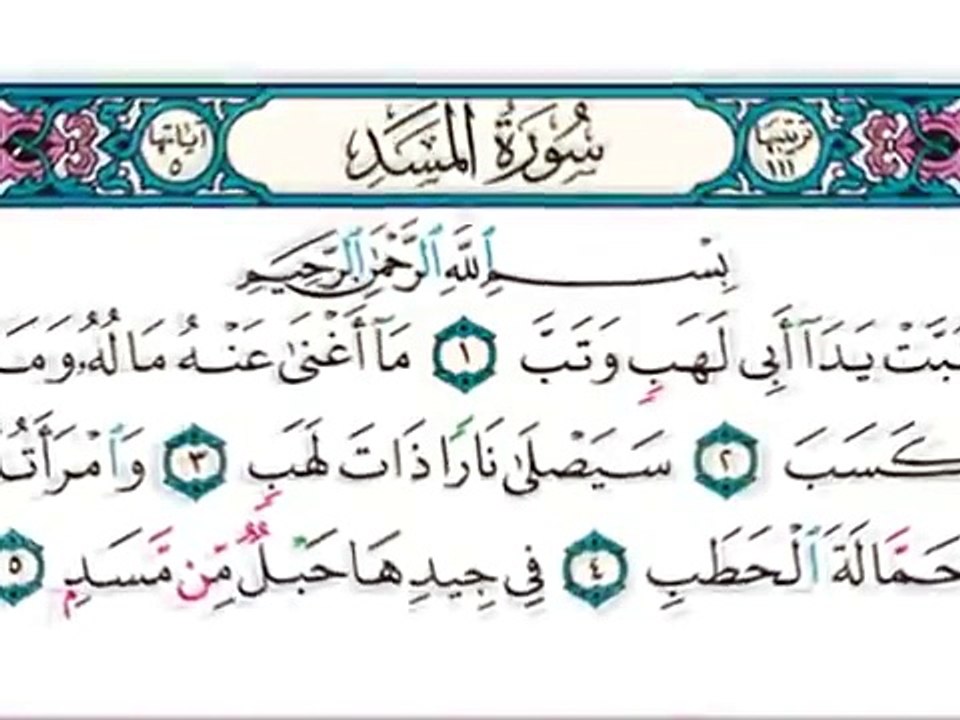 ترتيبها ١١١ سُورَةُ الْمَسَدِ آياتها ٥
بِسْمِ ٱللَّهِ ٱلرَّحْمَٰنِ ٱلرَّحِيمِ
تَبَّتْ يَدَآ أَبِى لَهَبٍ وَتَبَّ ١ مَآ أَغْنَىٰ عَنْهُ مَالُهُۥ وَمَا
كَسَبَ ٢ سَيَصْلَىٰ نَارًا ذَاتَ لَهَبٍ ٣ وَٱمْرَأَتُهُ
حَمَّالَةَ ٱلْحَطَبِ ٤ فِى جِيدِهَا حَبْلٌ مِّن مَّسَدٍ ٥